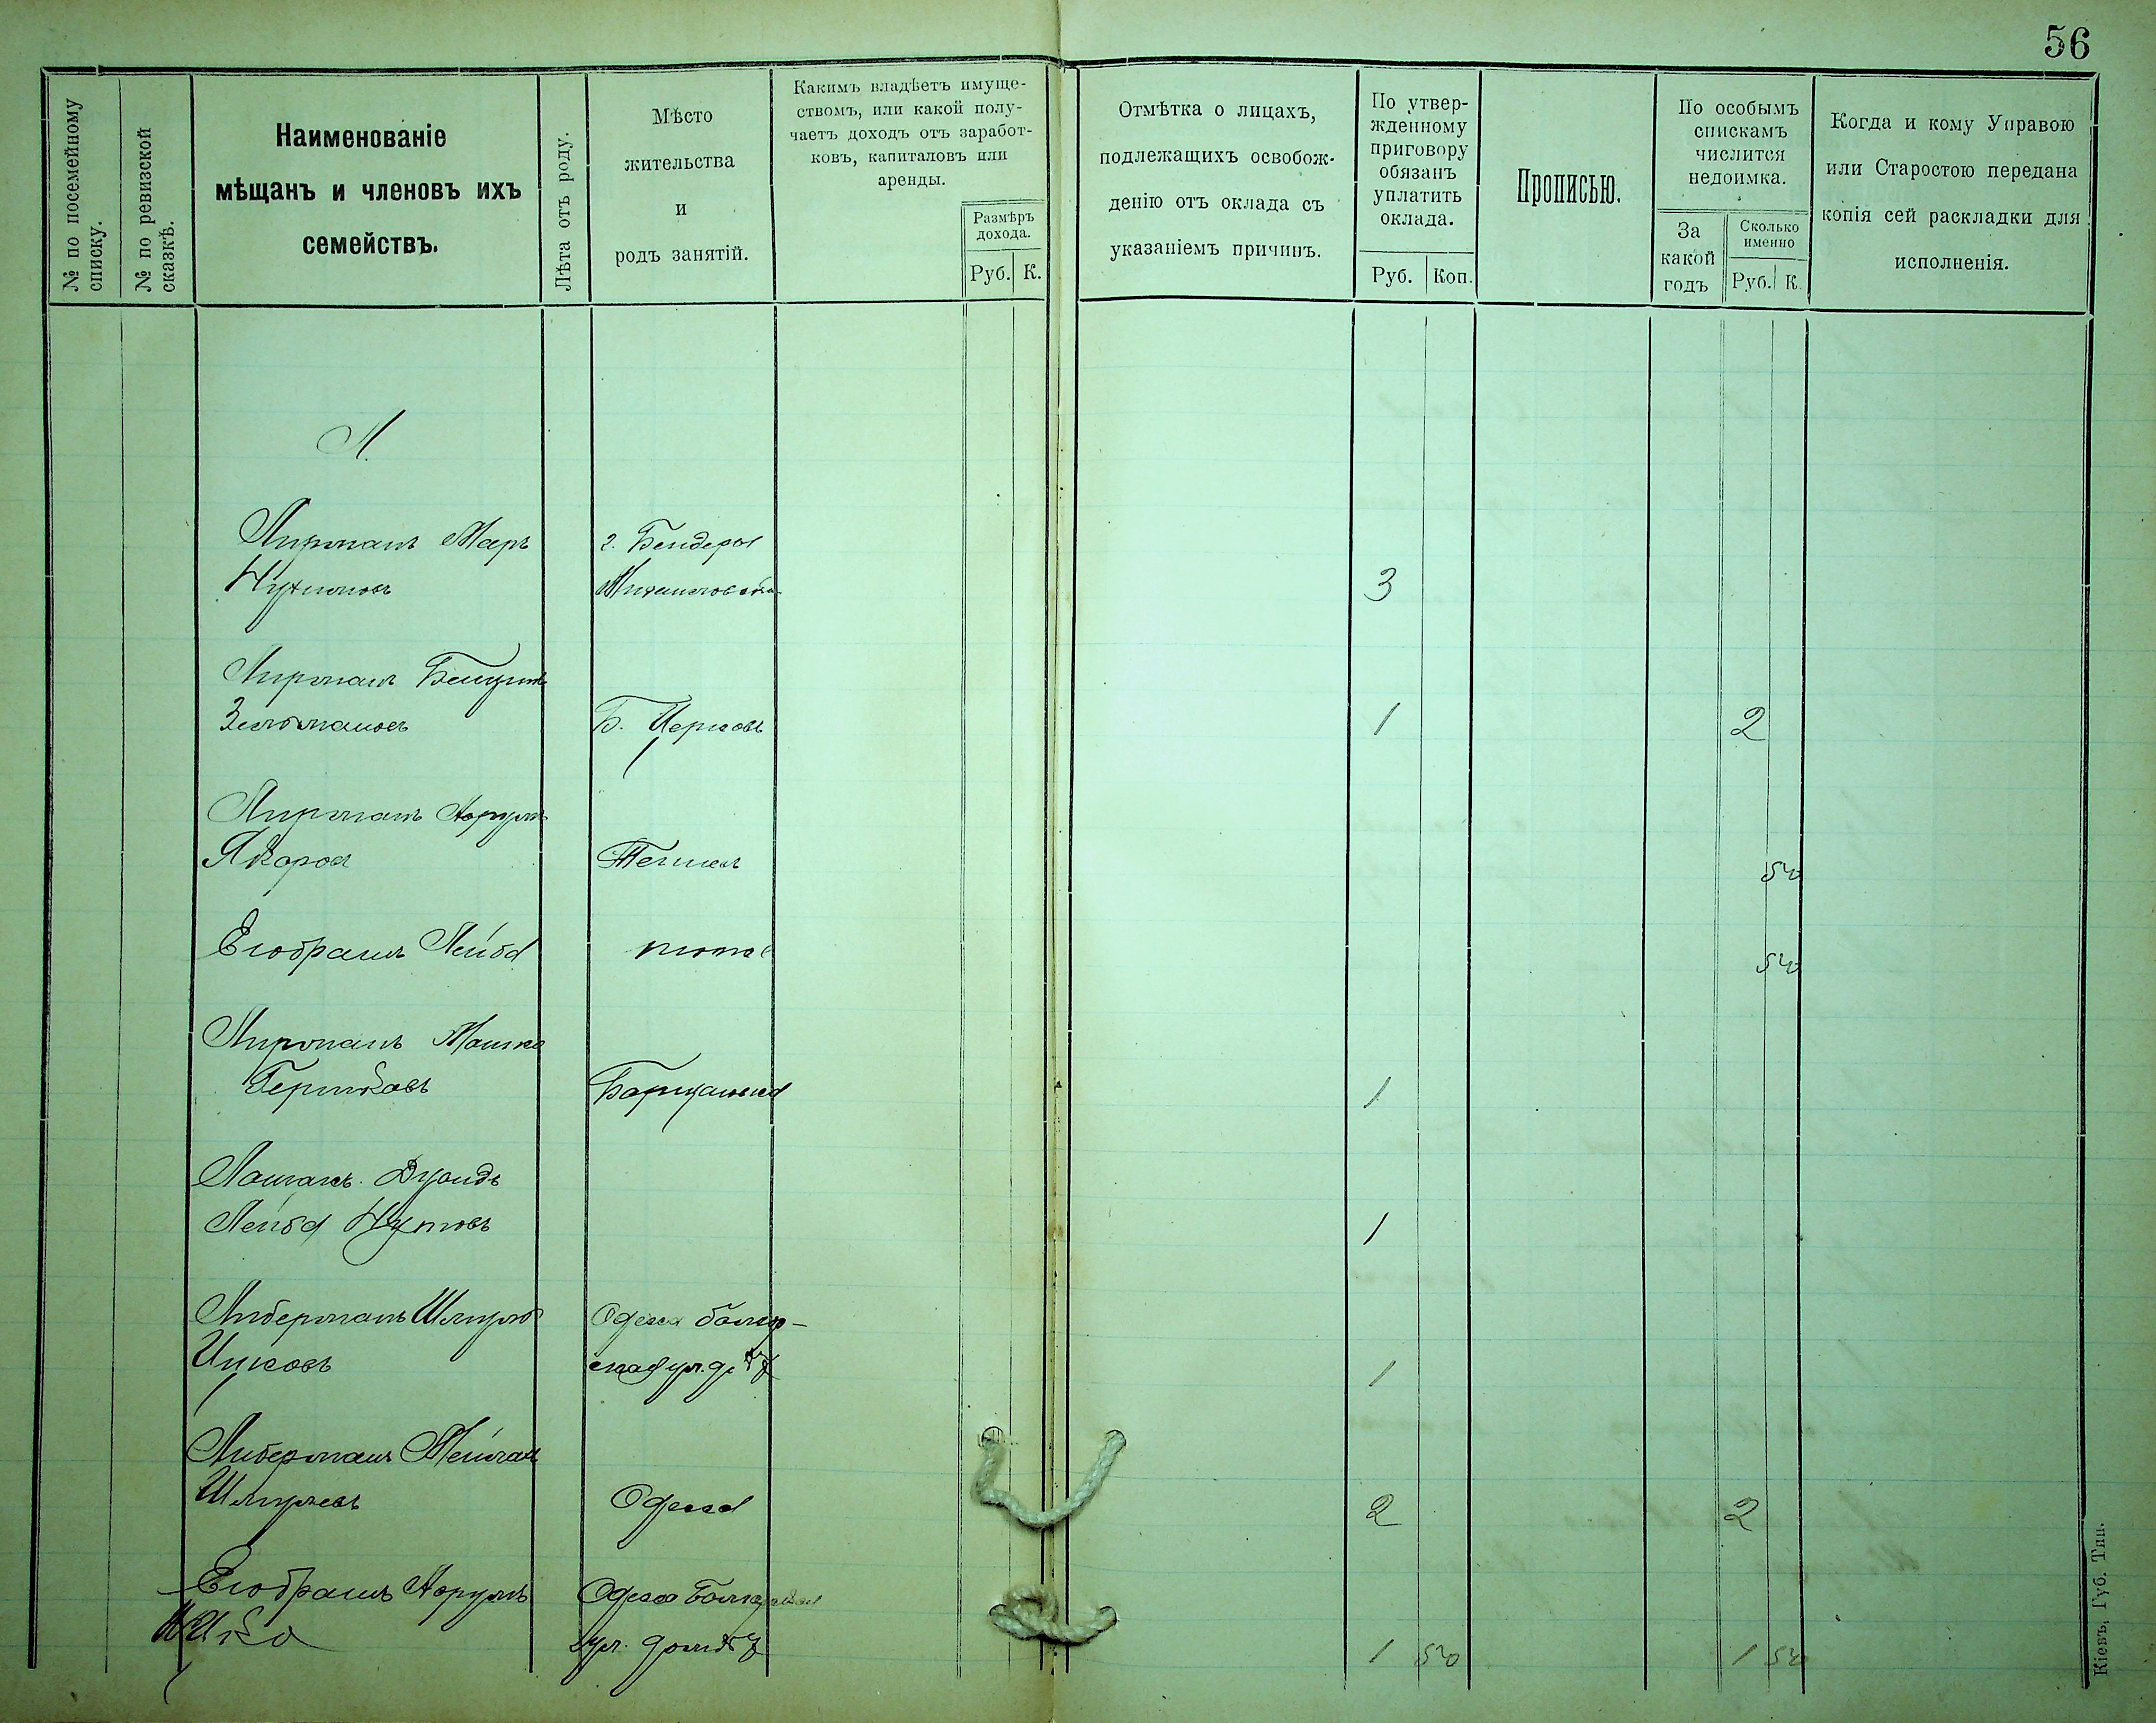 56
№ по посемейному списку.
№ по ревизской сказкѣ.
Наименованіе
мѣщанъ и членовъ ихъ
семействъ.
Лѣта отъ роду.
Мѣсто
жительства
и
родъ занятій.
Какимъ владѣетъ имуще-
ствомъ, или какой полу-
чаетъ доходъ отъ заработ-
ковъ, капиталовъ или
аренды.
Размѣръ
дохода.
Руб. К.
Отмѣтка о лицахъ,
подлежащихъ освобож-
денію отъ оклада съ
указаніемъ причинъ.
По утвер-
жденному
приговору
обязанъ
уплатить
оклада.
Руб. Коп.
Прописью.
По особымъ
спискамъ
числится
недоимка.
За
какой
годъ
Сколько
именно
Руб. К.
Когда и кому Управою
или Старостою передана
копія сей раскладки для
исполненія.
Л.
Лирманъ г. Бендеры
3
Лирманъ Бенціонъ
Зельмановъ Б. Церковь 1 2
Лирманъ
50
Его братъ Лейба тоже 50
Лирманъ Мошко
Гершковъ 1
Лейба 1
Либерманъ Шмуль Одесса болгар-
Ицковъ ская ул. д. № 7 1
Либерманъ
Шмулевъ Одесса 2 2
Его братъ Одесса Болгарская
Ицко ул. домъ № 7 1 50 1 50
Кіевъ, Губ. Тип.